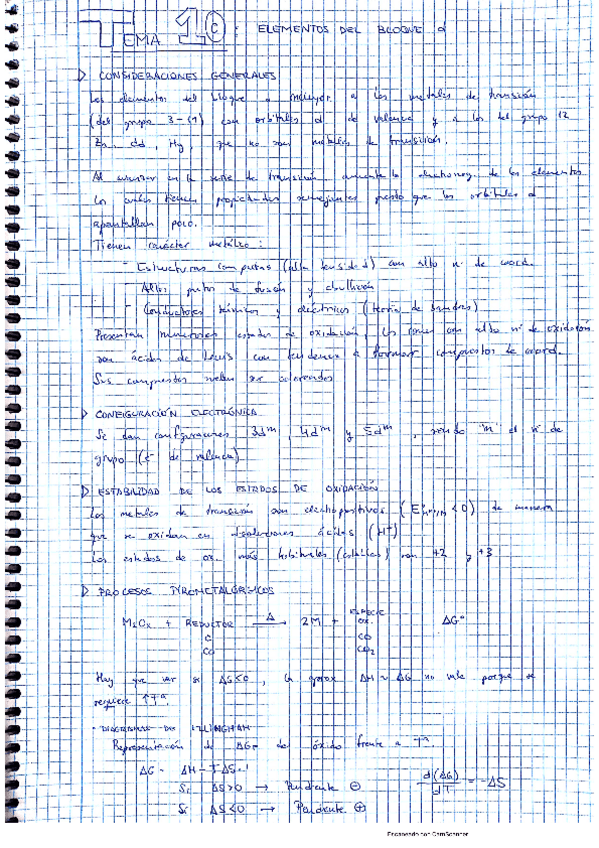 TEMA 10: ELEMENTOS DEL BLOQUE d
CONSIDERACIONES GENERALES
Los elementos del bloque d incluyen a los metales de transición
(del grupo 3-11) con orbitales d de valencia y a los del grupo 12
Zn, Cd, Hg, que no son metales de transición.
Al avanzar en la serie de transición aumenta la electroneg. de los elementos
Los tienen propiedades semejantes puesto que los orbitales d
apantallan poco.
Tienen carácter metálico:
- Estructuras compactas (alta densidad) con alto nº de coord.
- Altos puntos de fusión y ebullición
- Conductores térmicos y eléctricos (teoría de bandas)
Presentan numerosos estados de oxidación, los iones con alto nº de oxidación
son ácidos de Lewis con tendencia a formar compuestos de coord.
Sus compuestos suelen ser coloreados
CONFIGURACIÓN ELECTRÓNICA
Se dan configuraciones 3dᵐ, 4dᵐ y 5dᵐ, siendo "m" el nº de
grupo (e⁻ de valencia)
ESTABILIDAD DE LOS ESTADOS DE OXIDACIÓN
Los metales de transición son electropositivos (<0) de manera
que se oxidan en disoluciones ácidas (H⁺)
Los estados de ox. más habituales (estables) son +2 y +3
PROCESOS PIROMETALÚRGICOS
M₂Oₓ + REDUCTOR Δ→ 2M + ESPECIE OX. ΔG°
C CO
CO CO₂
Hay que ver si ΔS<0, la aprox ΔH ≈ ΔG no vale porque se
requiere ↑Tª
- DIAGRAMAS DE ELLINGHAM
Representación de de óxido frente a Tª
ΔG = ΔH - T·ΔS
Si ΔS>0 → Pendiente ⊖ d(ΔG)/dT = -ΔS
Si ΔS<0 → Pendiente ⊕
Escaneado con CamScanner